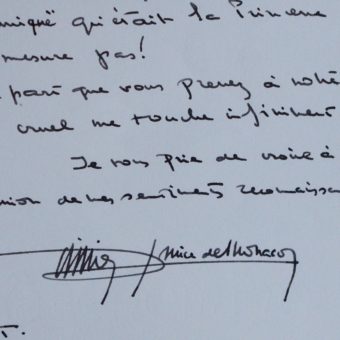 uniqué qu'était la Princesse
mesure pas!
part que vous prenez à notre
cruel me touche infiniment
Je vous prie de croire à
de mes sentiments reconnaissa
Prince de Monaco
T.